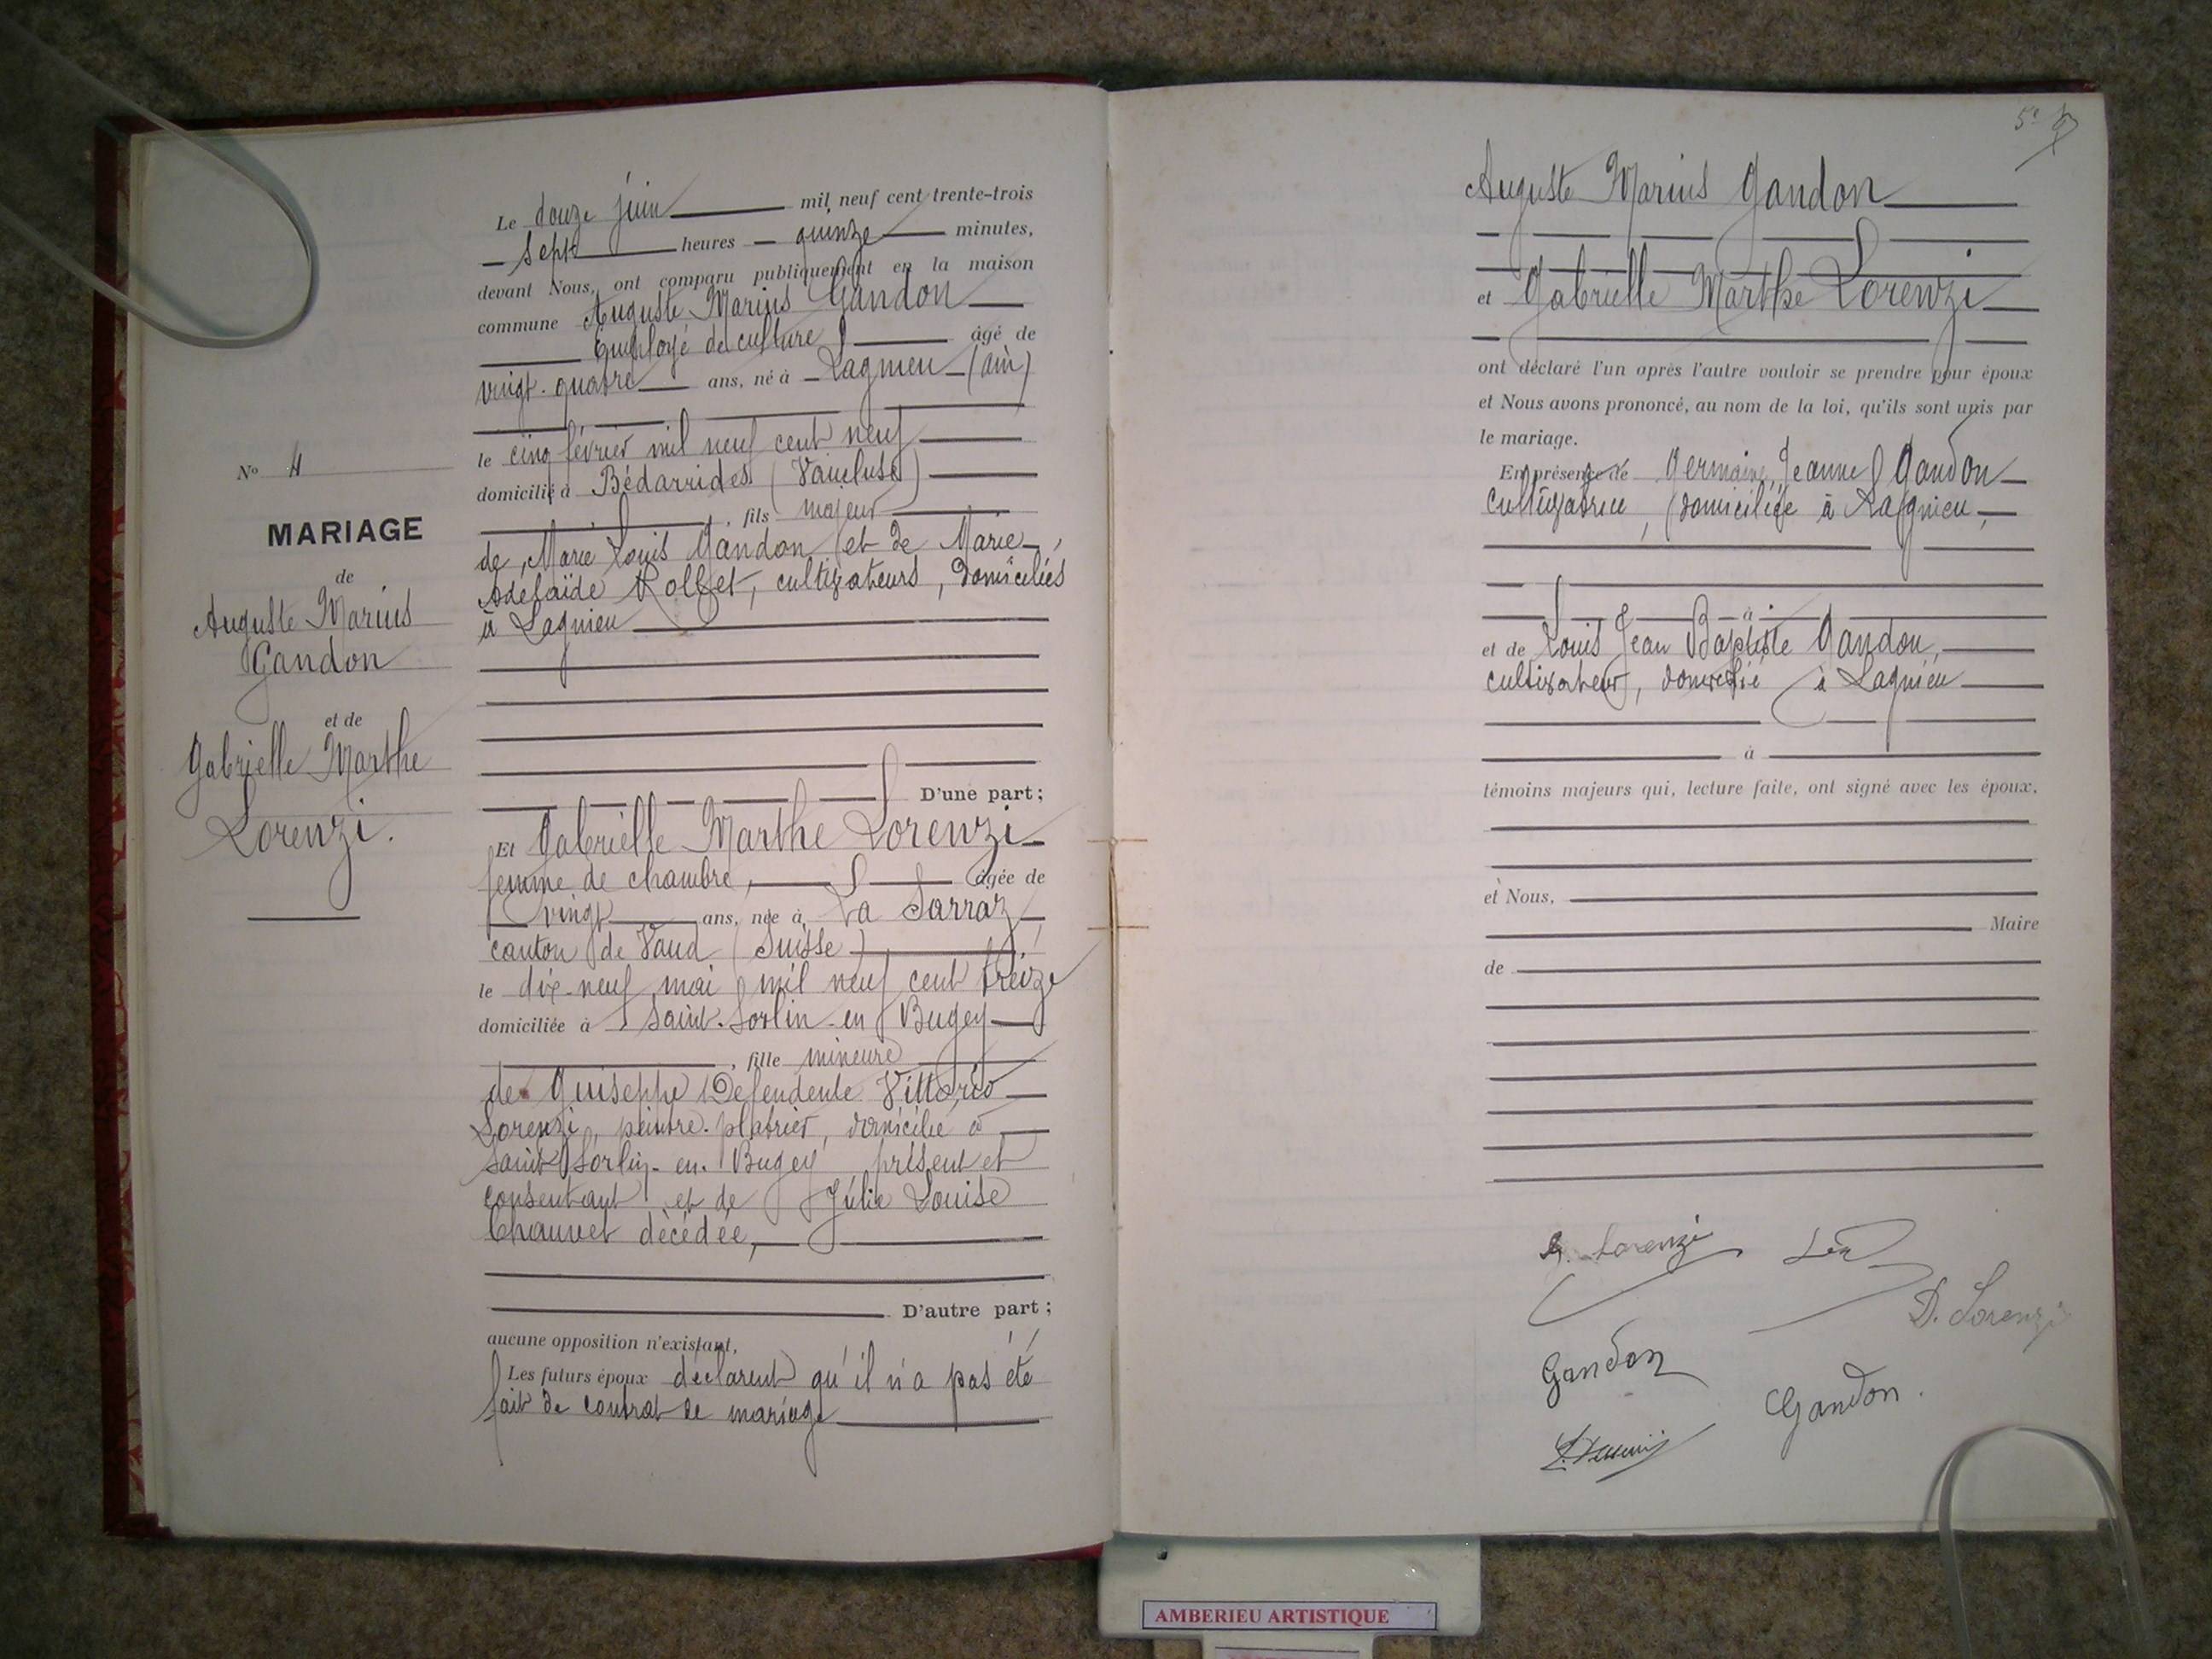 N° 4
MARIAGE
de
Auguste Marius
Gandon
et de
Gabrielle Marthe
Lorenzi.
Le douze juin mil neuf cent trente-trois
sept heures quinze minutes,
devant Nous, ont comparu publiquement en la maison
commune Auguste Marius Gandon
Employé de culture âgé de
vingt-quatre ans, né à Lagnieu (ain)
le cinq février mil neuf cent neuf
domicilié à Bédarrides (Vaucluse)
, fils majeur
de Marie Louis Gandon et de Marie
Adélaïde Rollet, cultivateurs, domiciliés
à Lagnieu
D'une part ;
Et Gabrielle Marthe Lorenzi
femme de chambre, âgée de
vingt ans, née à La Sarraz
canton de Vaud (Suisse)
le dix-neuf mai mil neuf cent treize
domiciliée à Saint-Sorlin-en Bugey
, fille mineure
de Guiseppe Defendente Vittorio
Lorenzi, peintre-platrier, domicilié à
Saint Sorlin-en-Bugey présent et
consentant et de Julie Louise
Chauvet décédée,
D'autre part ;
aucune opposition n'existant,
Les futurs époux déclarent qu'il n'a pas été
fait de contrat de mariage
5e
Auguste Marius Gandon
et Gabrielle Marthe Lorenzi
ont déclaré l'un après l'autre vouloir se prendre pour époux
et Nous avons prononcé, au nom de la loi, qu'ils sont unis par
le mariage.
En présence de Germaine Jeanne Gandon
cultivatrice, domiciliée à Lagnieu,
à
et de Louis Jean Baptiste Gandon,
cultivateur, domicilié à Lagnieu
à
témoins majeurs qui, lecture faite, ont signé avec les époux,
et Nous,
Maire
de
G. Lorenzi
D. Lorenzi
Gandon
Gandon.
AMBERIEU ARTISTIQUE